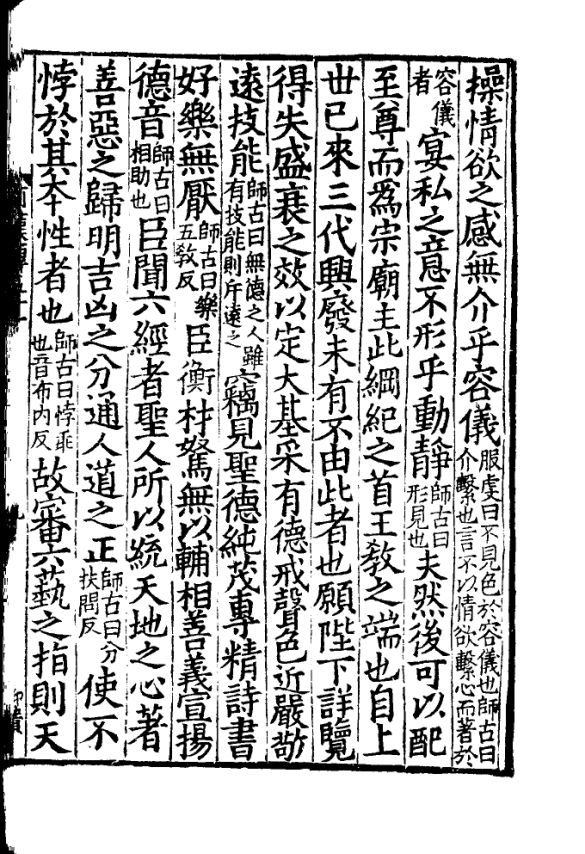 操情欲之感無介乎容儀服虔曰不見色於容儀也師古曰介繫也言不以情欲繫心而著於
容儀者宴私之意不形乎動靜師古曰形見也夫然後可以配
至尊而爲宗廟主此綱紀之首王教之端也自上
丗已來三代興廢未有不由此者也願陛下詳覽
得失盛衰之效以定大基采有德戒聲色近嚴敬
遠技能師古曰無德之人雖有技能則斥遠之竊見聖德純茂專精詩書
好樂無厭師古曰樂五敎反臣衡材駑無以輔相善義宣揚
德音師古曰相助也臣聞六經者聖人所以統天地之心著
善惡之歸明吉凶之分通人道之正師古曰分扶問反使不
悖於其夲性者也師古曰悖乖也音布内反故審六藝之指則天